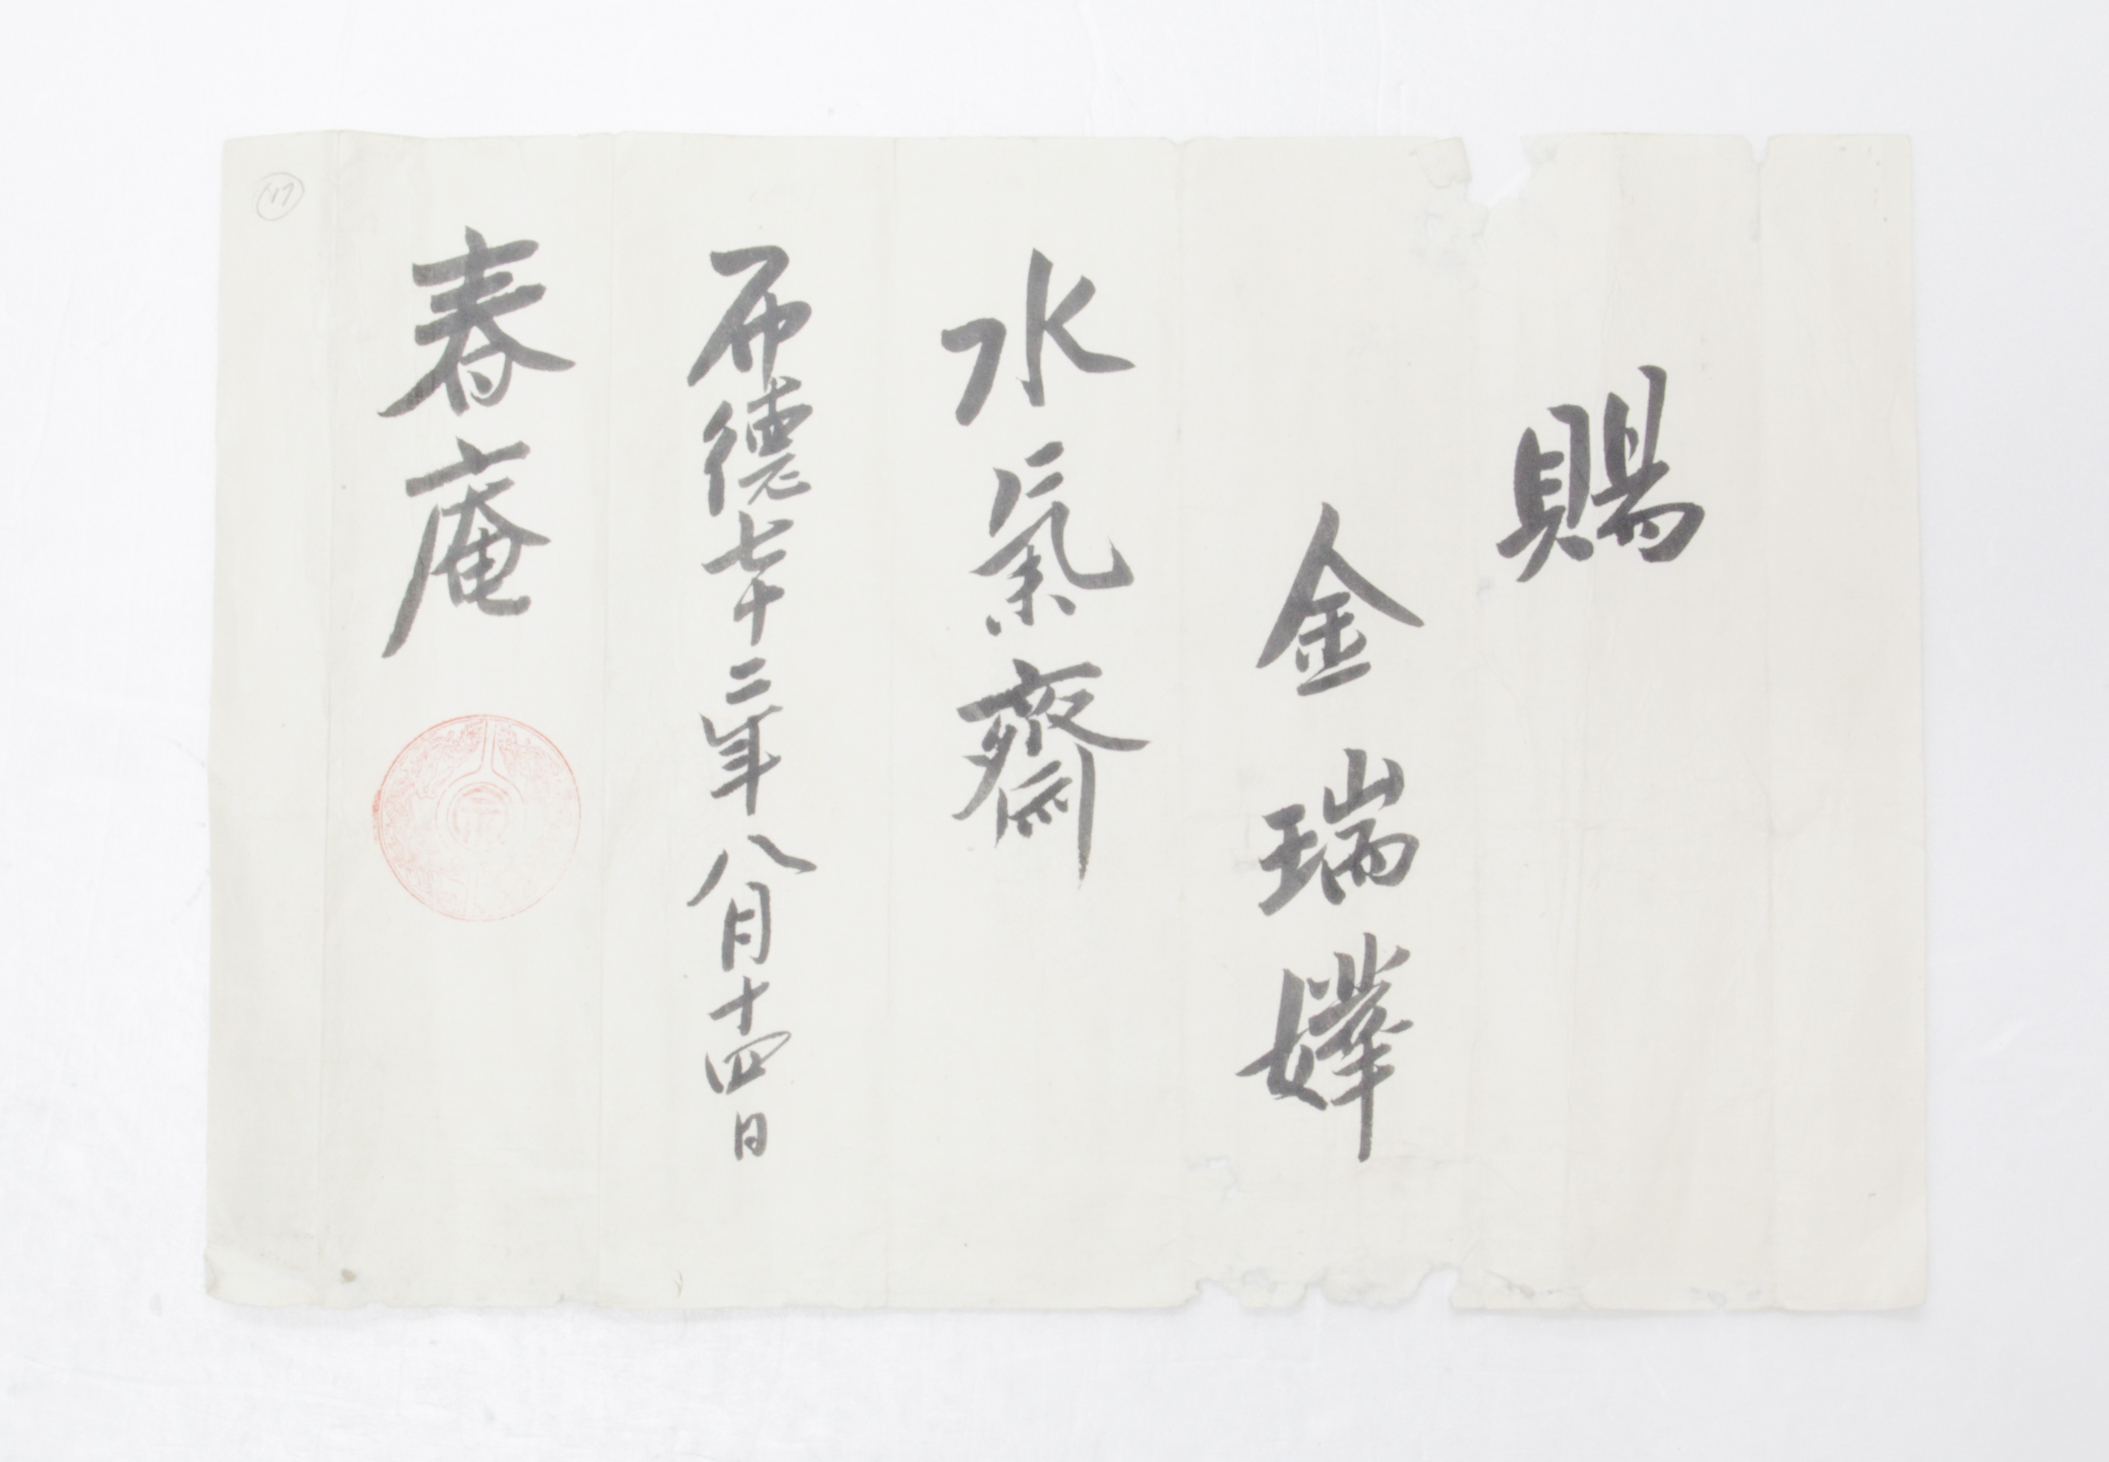 賜
金瑞嬅
水氣齋
布德七十二年八月十四日
春庵